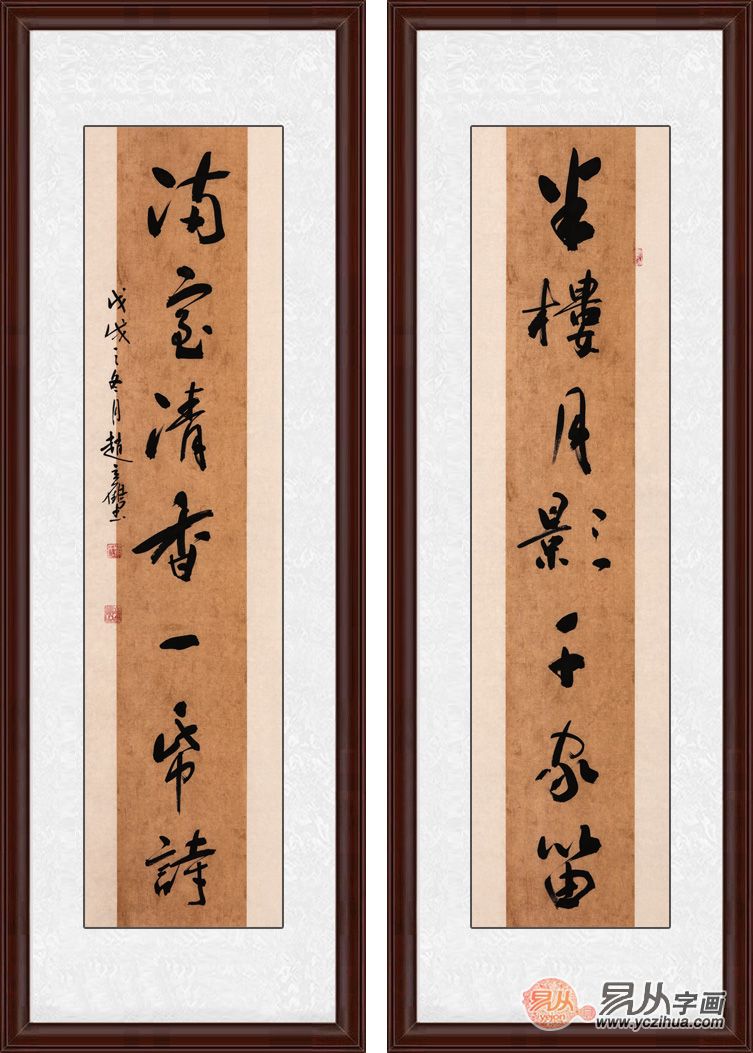 半樓月影千家笛
滿室清香一帋詩
戊戌之冬月趙
易从
易从字画
www.yczihua.com